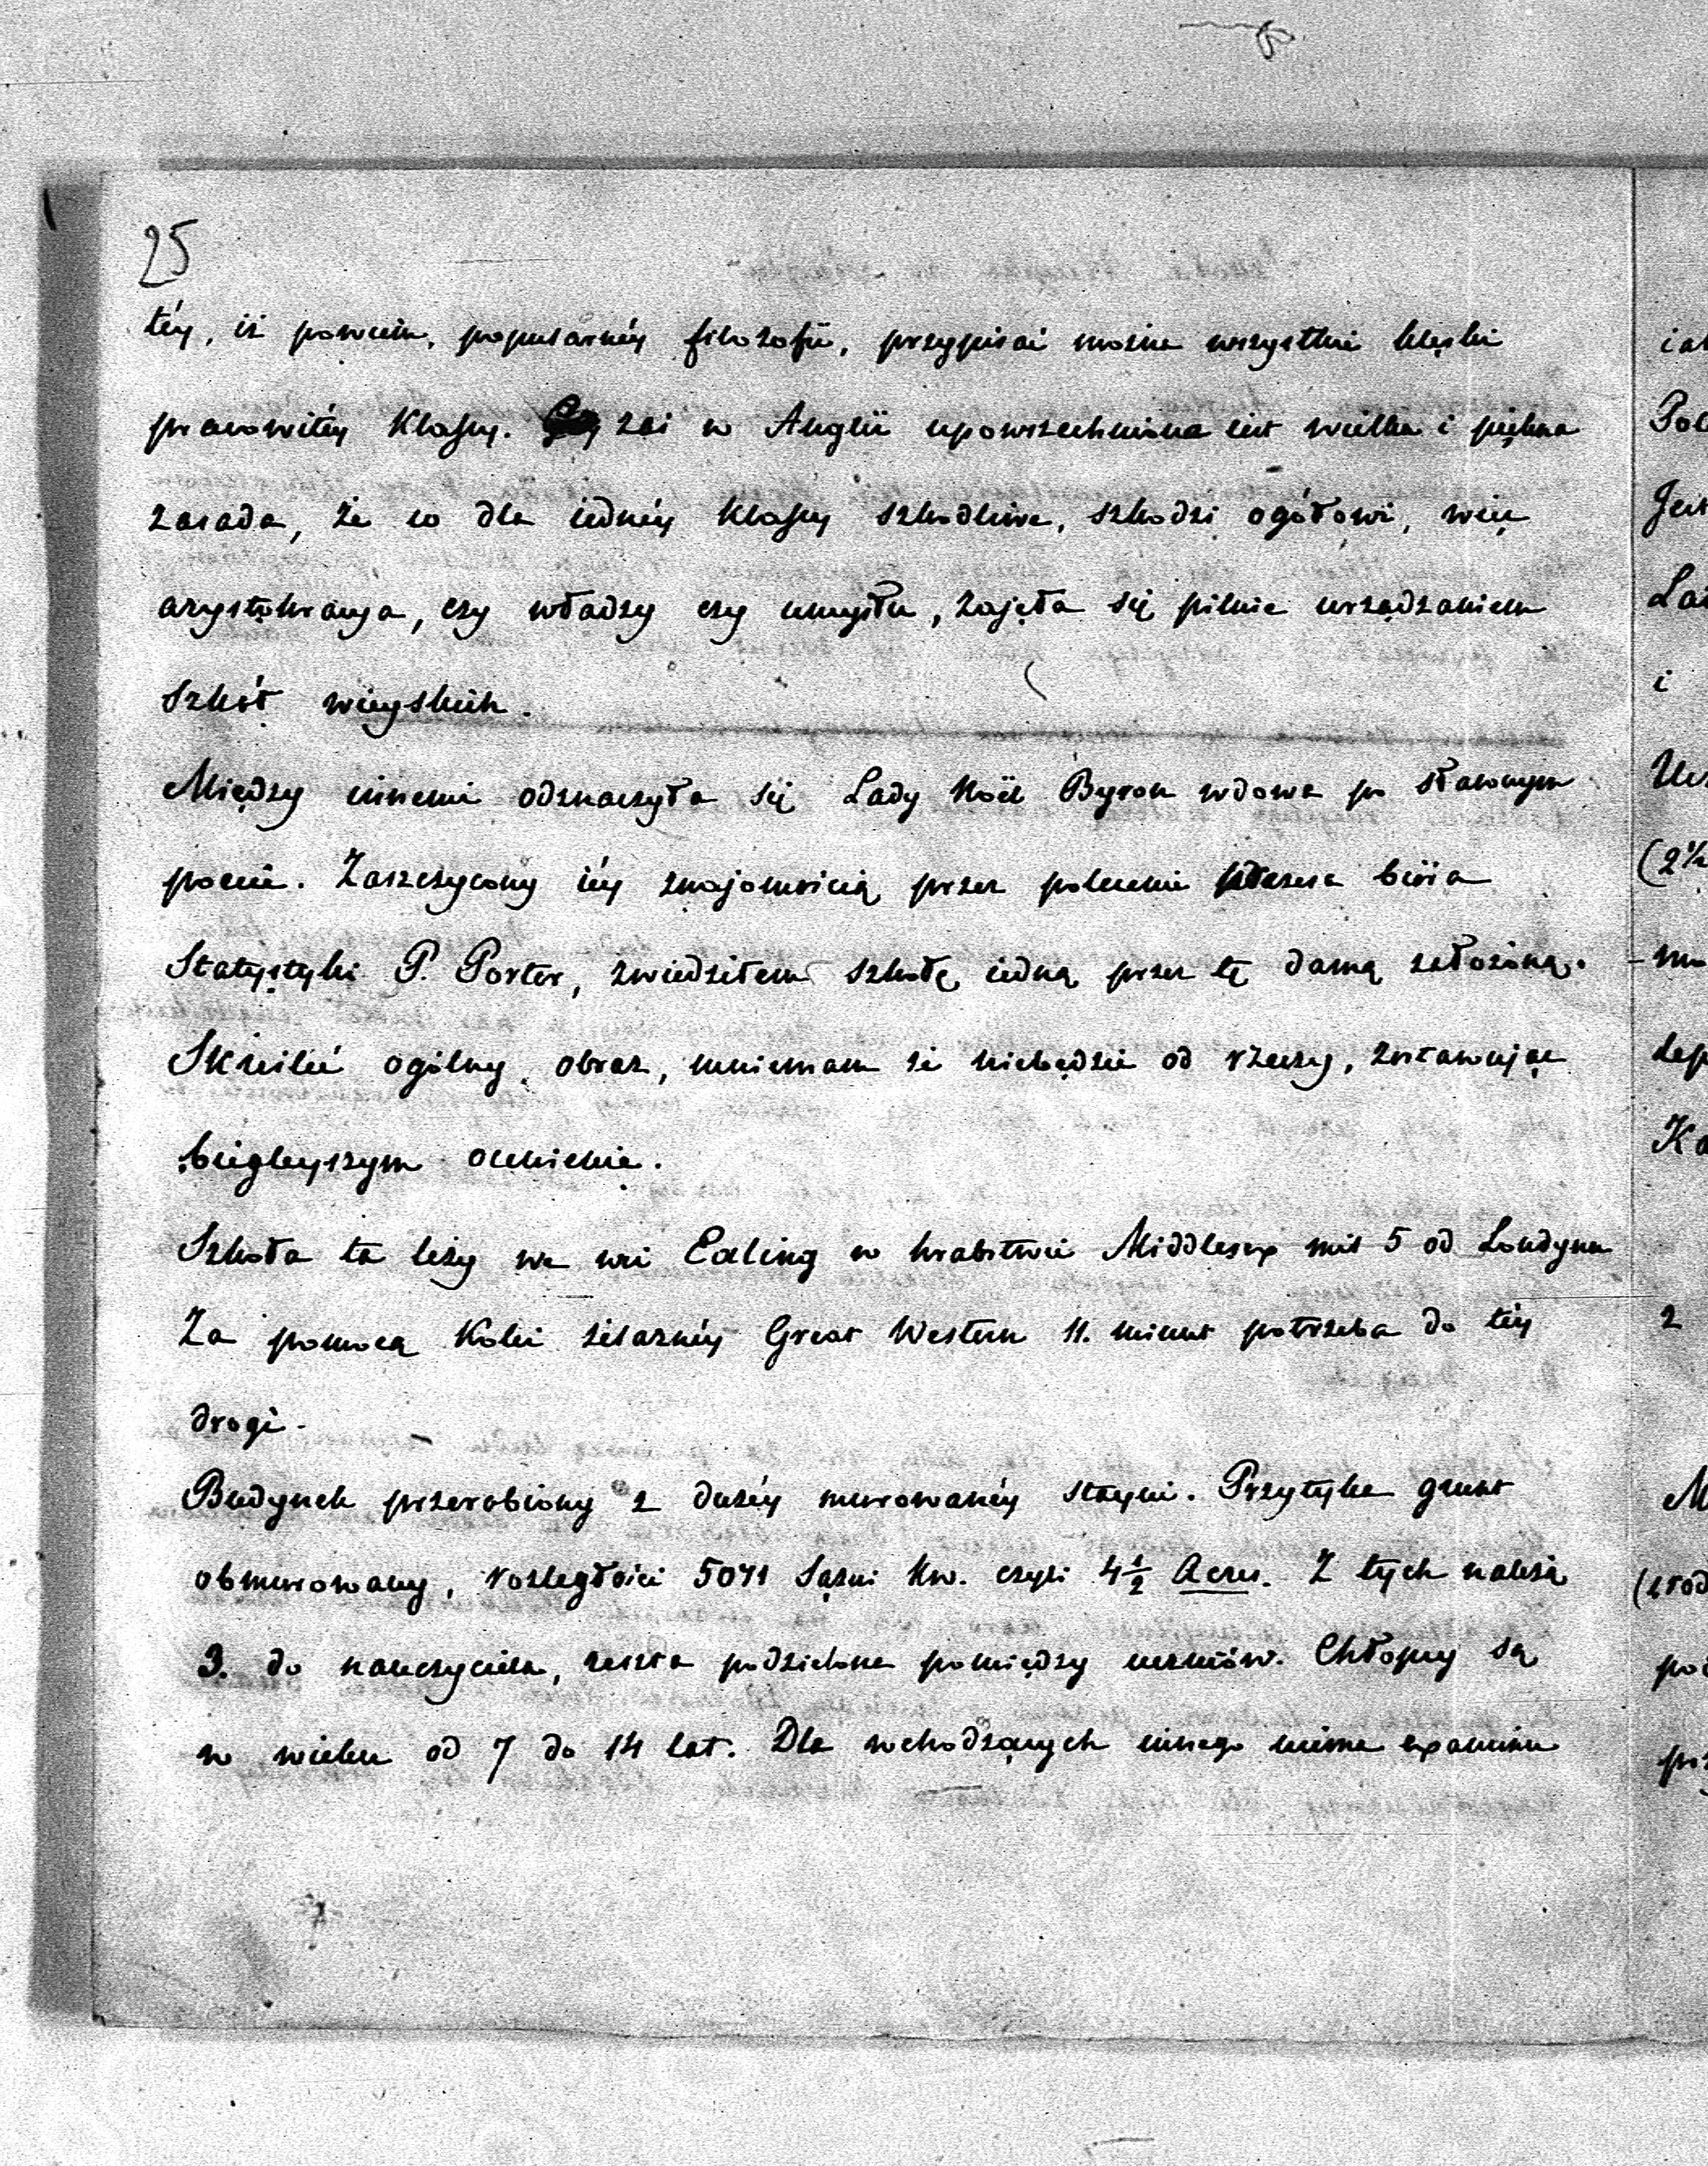 25
téy, iż powiem, popularnéy filozofii, przypisać można wszystkie klęski
pracowitéy klassy. zaś w Anglii upowszechniona iest wielka i piękna
zasada, że co dla iednéy klassy szkodliwe, szkodzi ogółowi, więc
arystokracya, czy władzy czy umysłu, zajęła się pilnie urządzaniem
szkół wieyskich.
Między innemi odznaczyła się Lady Noël Byron wdowa po sławnym
poecie. Zaszczycony iéy znajomością przez polecenie prezesa biura
Statystyki P. Porter, zwiedziłem szkołę iedną przez tę damę założoną.
Skreślić ogólny obraz, mniemam że niebędzie od rzeczy, zostawując
biegleyszym ocenienie.
Szkoła ta leży we wsi Ealing w hrabstwie Middlesex mil 5 od Londynu
Za pomocą kolei żelaznéy Great Western 11. minut potrzeba do téy
drogi.
Budynek przerobiony z dużéy murowanéy stayni. Przytyka grunt
obmurowany, rozległości 5071 Sążni kw. czyli 4½ Acres. Z tych należą
3. do nauczyciela, reszta podzielona pomiędzy uczniów. Chłopcy są
w wieku od 7 do 14 lat. Dla wchodzących innego niema expaminu
iak
Pol
Jest
La
i
Ucz
(2½
mo
lep
Ka
z
M
(srod
poł
prz